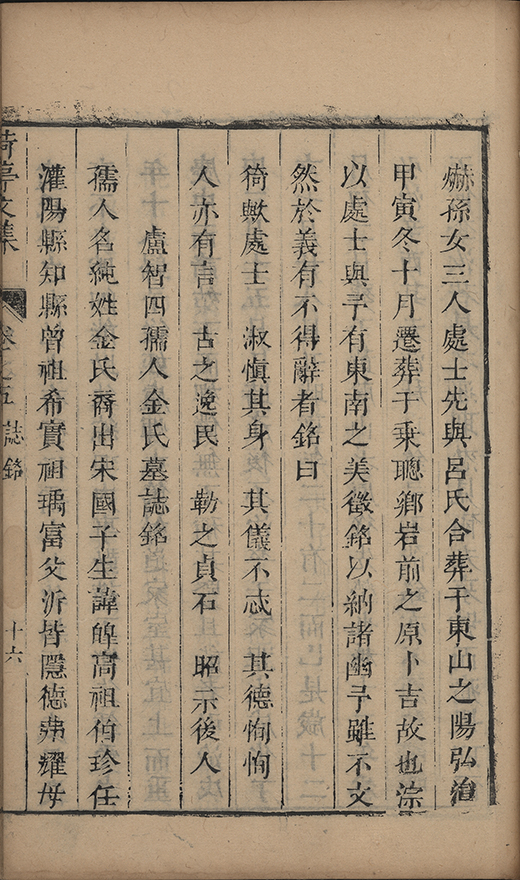 赫孫女三人處士先與呂氏合葬于東山之陽弘治
甲寅冬十月遷葬于乗聰鄉岩前之原卜吉故也淙
以處士與予有東南之美徵銘以納諸幽予雖不文
然於義有不得辭者銘曰
猗歟處士 淑慎其身 其儀不忒 其德恂恂
人亦有言 古之逸民 勒之貞石 昭示後人
盧智四孺人金氏墓誌銘
孺人名純姓金氏裔出宋國子生諱皞高祖伯珍任
灌陽縣知縣曾祖希實祖瑀富父沂皆隱德弗耀母
亭文集 卷之五 誌銘 十六